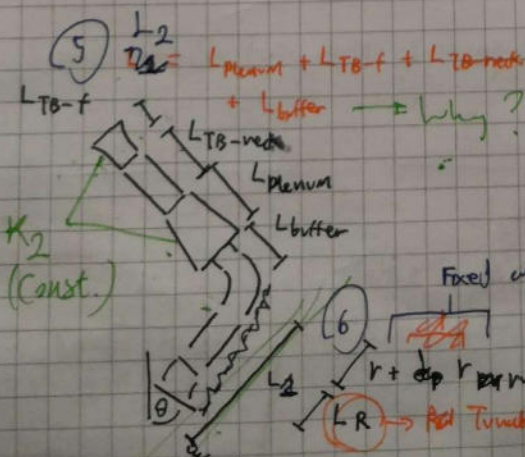 5 L2 = Lplenum + LTB-f + LTB-neck
+ Lbuffer → Why?
LTB-f
LTB-neck
Lplenum
Lbuffer
K2
(Const.)
Fixed
6
r + r
L2
LR →
θ